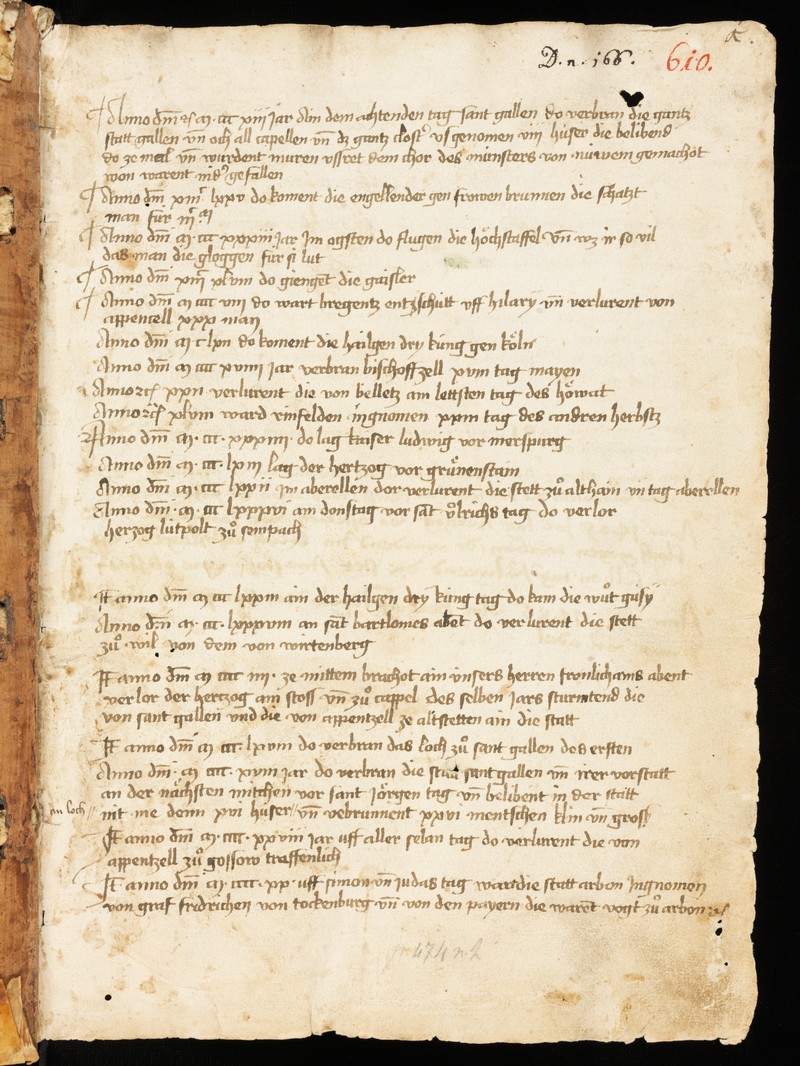 D. n. 166. 610.
Anno dm̄ m ccc xiiij jar An dem achtenden tag sant gallen do verbran die gantz
statt gallen vn̄ och all capellen vn̄ dz gantz closter vsgenomen viii hüser die belibend
do ze mal vn̄ wurdent muren vssret dem chor des münsters von nüwem gemachot
won warent nider gefallen
Anno dm̄ lxxv do koment die engellender gen frowen brunnen die schatzt
man für
Anno dm̄ m ccc xxxiiij jar Im ogsten do flugen die höchstaffel vn̄ wz ir so vil
das man die gloggen für si lut
Anno dm̄ xlviii do giengēt die gaisler
Anno dm̄ m cccc viii do wart bregentz entschütt vff hilary vn̄ verlurent von
appencell xxx man
Anno dm̄ m c lxii do koment die hailgen dry küng gen köln
Anno dm̄ m cccc xviiii jar verbran bischoffzell xviii tag mayen
Anno xxii verlurent die von belletz am lettsten tag des höwat
Anno xlviii ward rinfelden ingnomen xxiii tag des andren herbstz
Anno dm̄ m. ccc. xxxiiii. do lag kaiser ludwig vor merspurg
Anno dm̄ m. ccc. lxiii lag der hertzog vor grünenstain
Anno dm̄ m. ccc lxxii im aberellen dor verlurent die stett zů althain vii tag aberellen
Anno dm̄. m. ccc lxxxvi am donstag vor sāt ůlrichs tag do verlor
herzog lütpolt zů sempach
anno dm̄ m ccc lxxiii ain der hailgen dry küng tag do kam die wůt güsy
Anno dm̄ m. ccc. lxxxviii an sāt bartlomes abet do verlurent die stett
zů wil von dem von wirtenberg
anno dm̄ m cccc iiii. ze mittem brachot ain ünsers herren fronlichams abent
verlor der hertzog am stoss vn̄ zů cappel des selben jars sturmtend die
von sant gallen vnd die von appentzell ze altstetten ain die statt
anno dm̄ m ccc. lxviii do verbran das loch zů sant gallen des ersten
Anno dm̄. m cccc. xviii jar do verbran die statt sant gallen vn̄ irer vorstatt
an der nächsten mitchen vor sant jörgen tag vn̄ belibent in der statt
im loch
nit me denn xvi hüser vn̄ verbrunnent xxvi mentschen klin vn̄ gross
anno dm̄ m. cccc. xxviii jar vff aller selan tag do verlurent die von
appentzell zů gossow treffenlich
anno dm̄ m. cccc. xx. vff simon vn̄ iudas tag ward die statt arbon Ingnomen
von graf fridrichen von tockenburg vn̄ von den payern die warēt vogt zů arbon
474 n. 2